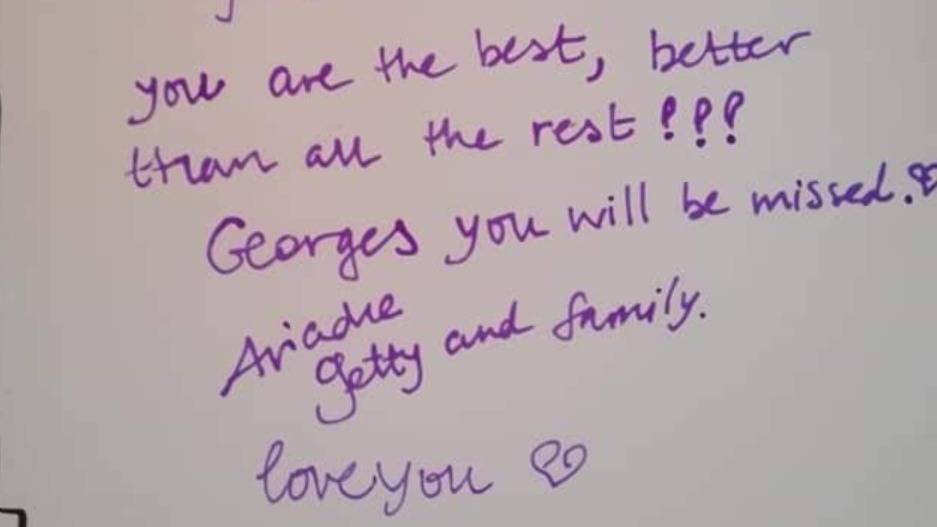 you are the best, better
than all the rest!!!
Georges you will be missed.♡
Ariadne
getty and family.
love you ♡